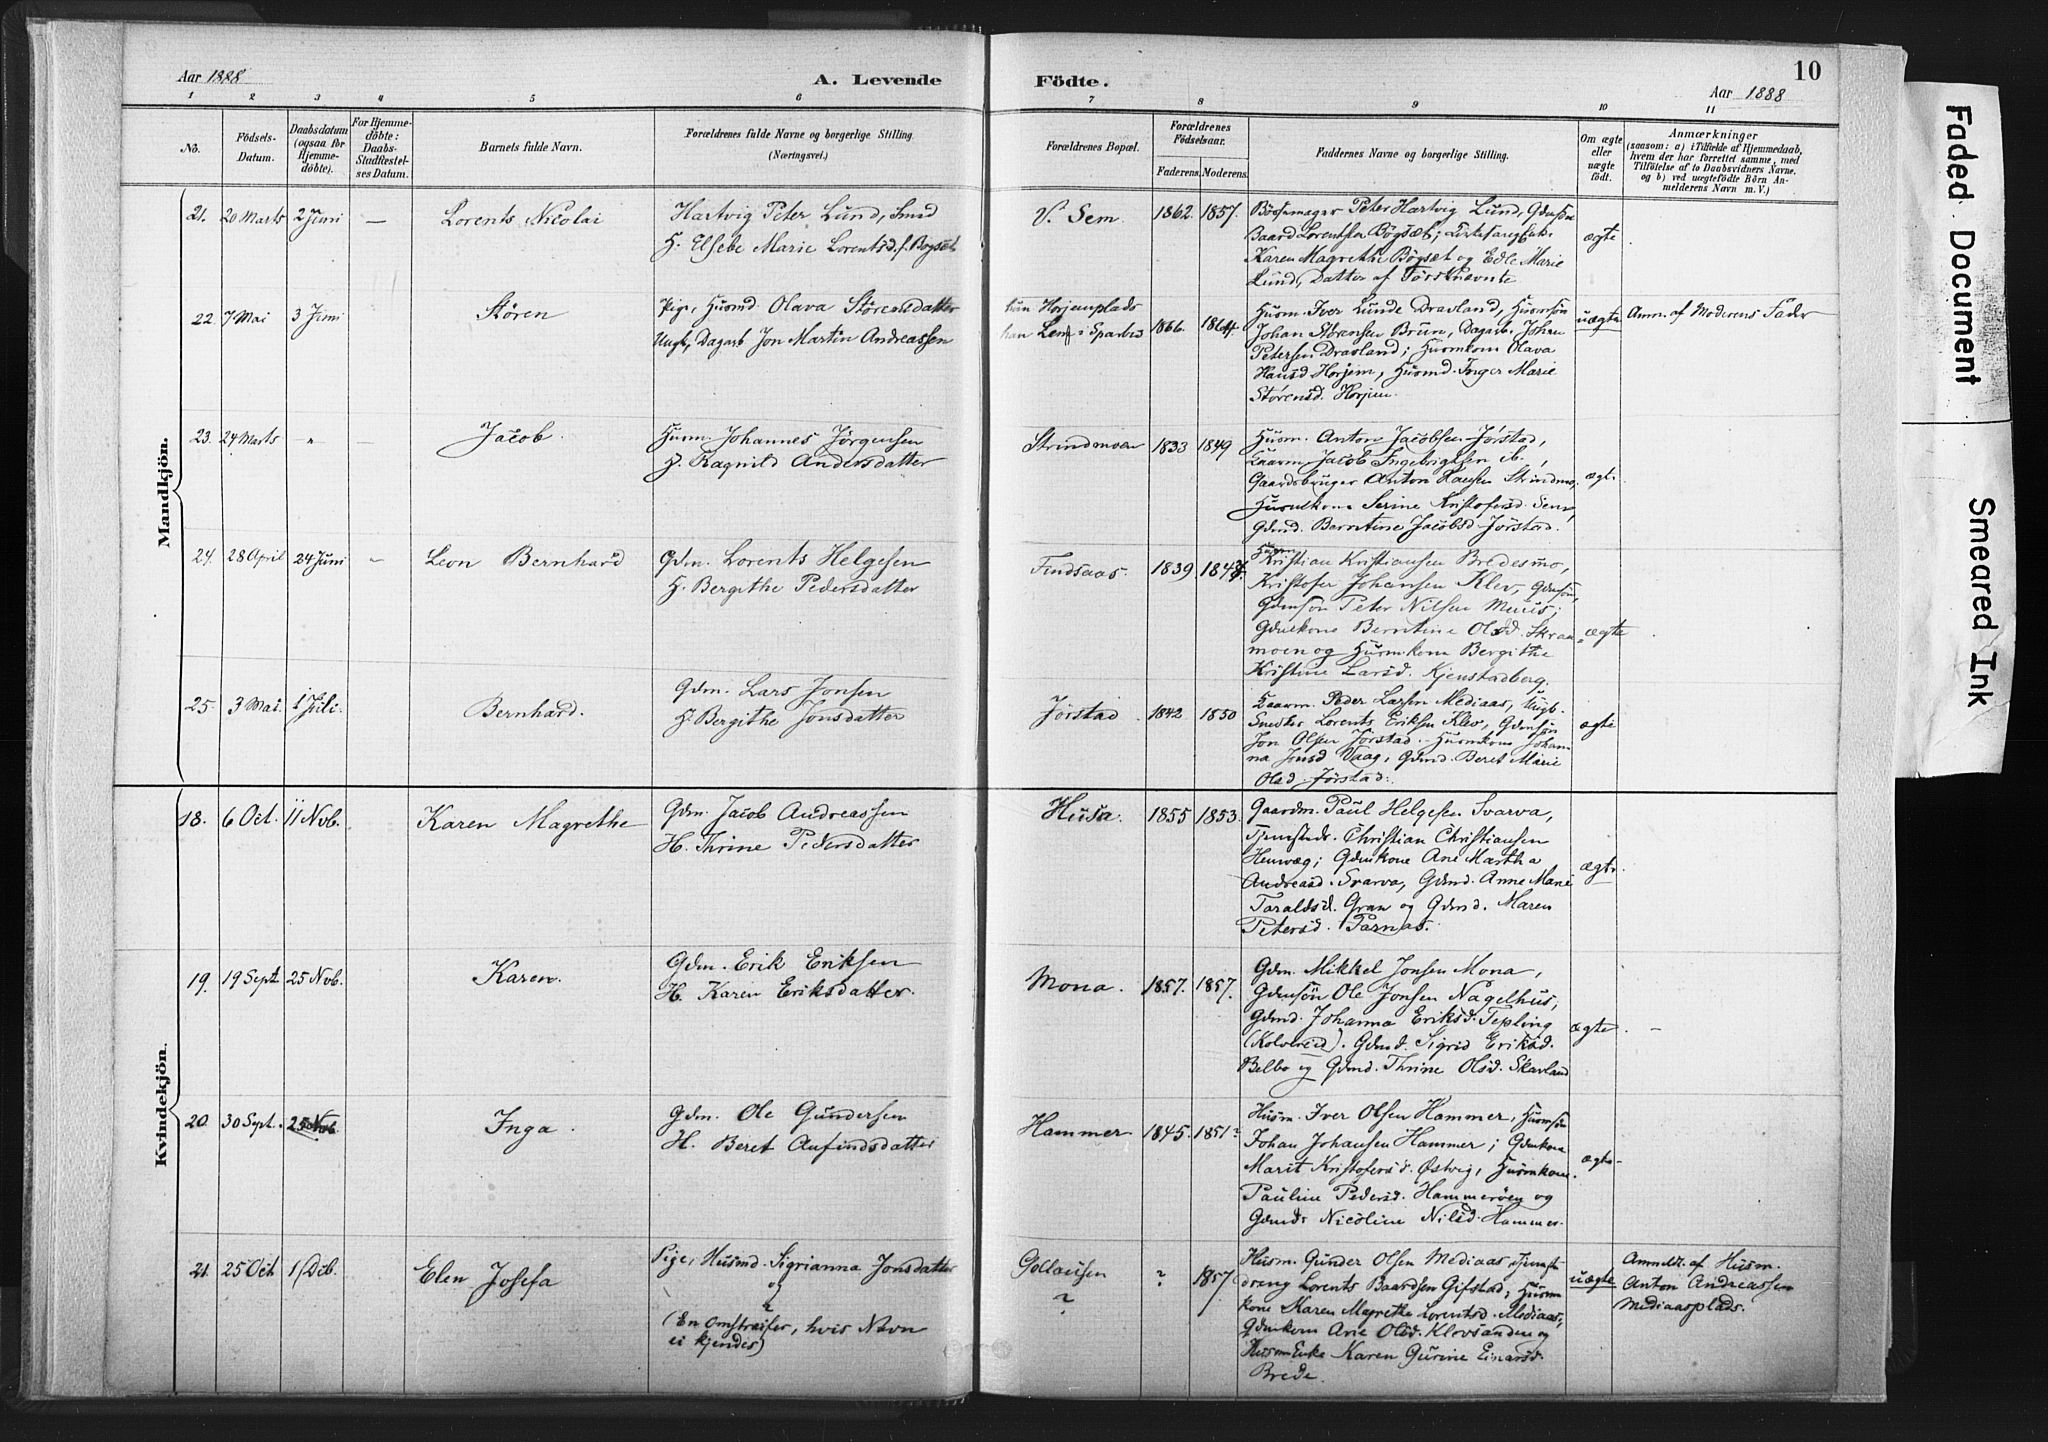 Aar 1888
A. Levende
Födte.
10
Aar 1888
1 2 3 4 5 6 7 8 9 10 11
No.
Födsels-
Datum.
Daabsdatum
(ogsaa for
Hjemme-
döbte).
For Hjemme-
döbte:
Daabs-
Stadfæstel-
ses Datum.
Barnets fulde Navn.
Forældrenes fulde Navne og borgerlige Stilling.
(Næringsvei.)
Forældrenes Bopæl.
Forældrenes
Födselsaar.
Faderens. Moderens.
Faddernes Navne og borgerlige Stilling.
Om ægte
eller
uægte
födt.
Anmærkninger
(saasom: a) i Tilfælde af Hjemmedaab,
hvem der har forrettet samme, med
Tilföielse af to Daabsvidners Navne,
og b) ved uægtefödte Börn An-
melderens Navn m. V.)
Mandkjön.
21. 20 Marts 2 Juni —
Lorents Nicolai
Hartvig Peter Lund, Smed
H. Elsebe Marie Lorentsd. f. Bogset
V. Sem. 1862. 1857.
Bössemager Peter Hartvig Lund, Gdmsön
Baard Lorentsen Bögsæt;
Karen Magrethe Bögsæt og Edle Marie
Lund, Datter af Förstnævnte
ægte
22. 7 Mai 3 Juni
Stören
Pige, Husmd Olava Störensdatter
Ungk, Dagarb Jon Martin Andreassen
hun Horjemplads
han Lein i Sparbu 1866. 1864.
Husm. Iver Lunde Dravland, Husmsön
Johan Brun, Dagarb. Johan
Petersen Dravland; Husmkone Olava
Hansd Horjem, Husmd. Inger Marie
Störensd. Horjem.
uægte
Anm. af Moderens Fader
23. 24 Marts " —
Jacob.
Husm. Johannes Jörgensen
H. Ragnild Andersdatter
Strindmoen 1833 1849
Husm. Anton Jacobsen Jörstad,
Gaarm. Jacob Ingebrigtsen ib.,
Gaardbruger Anton Hansen Strindmo,
Husmkone Serine Kristofersd. Sem,
Gdmd. Berntine Jacobsd Jörstad.
ægte
24. 28 April 24 Juni —
Leon Bernhard
Gdm. Lorents Helgesen
H. Bergithe Pedersdatter
Findsaas. 1839 1847.
Husm.
Kristian Kristiansen Bredesmo,
Kristofer Johansen Klev, Gdmsön,
Gdmsön Peter Nilsen Muus;
Gdmkone Berntine Olsd. Skraa-
moen og Husmkone Bergithe
Kristine Larsd. Kjenstadberg.
ægte
25. 3 Mai. 1 Juli.
Bernhard.
Gdm. Lars Jonsen
H. Bergithe Jonsdatter
Jörstad 1842 1850
Gaarm. Peder Larsen Mediaas, Ungk.
Snedker Lorents Eriksen Klev, Gdmsön
Jon Olsen Jörstad. Husmkone Johan-
na Jonsd Vaag, Gdmd. Beret Marie
Olsd Jörstad.
ægte
Kvindekjön.
18. 6 Oct. 11 Nov.
Karen Magrethe
Gdm. Jacob Andreassen
H. Thrine Pedersdatter
Husa. 1855 1853.
Gaardm. Paul Helgesen Svarva,
Tjenstedr. Christian Christiansen
Gdmkone Ane Martha
Andreasd. Svarva, Gdmd. Anne Marie
Taraldsd. Gran og Gdmd. Maren
Petersd. Parnas.
ægte
19. 19 Sept 25 Nov.
Karen.
Gdm. Erik Eriksen
H. Karen Eriksdatter.
Mona. 1857. 1857.
Gdm. Mikkel Jonsen Mona,
Gdmsön Ole Jonsen Nagelhus,
Gdmd. Johanna Eriksd. Tepling
(Kolvereid). Gdmd. Sigrid Eriksd.
Belbo og Gdmd. Thrine Olsd. Skavland
ægte. —
20. 30 Sept. 25 Nov.
Inga.
Gdm. Ole Gundersen
H. Beret Anfindsdatter
Hammer 1845. 1851?
Husm. Iver Olsen Hammer, Husmsön
Johan Johansen Hammer; Gdmkone
Marit Kristofersd. Østvig, Husmkone.
Pauline Pedersd. Hammeröen og
Gdmd. Nicoline Nilsd. Hammer.
ægte
21. 25 Oct 1 Deb.
Elen Josefa
Pige, Husmd. Sigrianna Jonsdatter
og
?
(En Omstreifer, hvis Navn
ei kjendes)
Gollausen
?
? 1857.
Husm. Gunder Olsen Mediaas, Tjenst-
dreng Lorents Baardsen Gifstad, Husm-
kone Karen Magrethe Lorentsd. Mediaas,
Gdmkone Ane Olsd. Klovsanden og
Husm Enke Karen Gurine Einarsd.
Brede.
uægte
Anmeldt af Husm.
Anton Andreassen
Mediaasplads.
Faded Document Smeared Ink